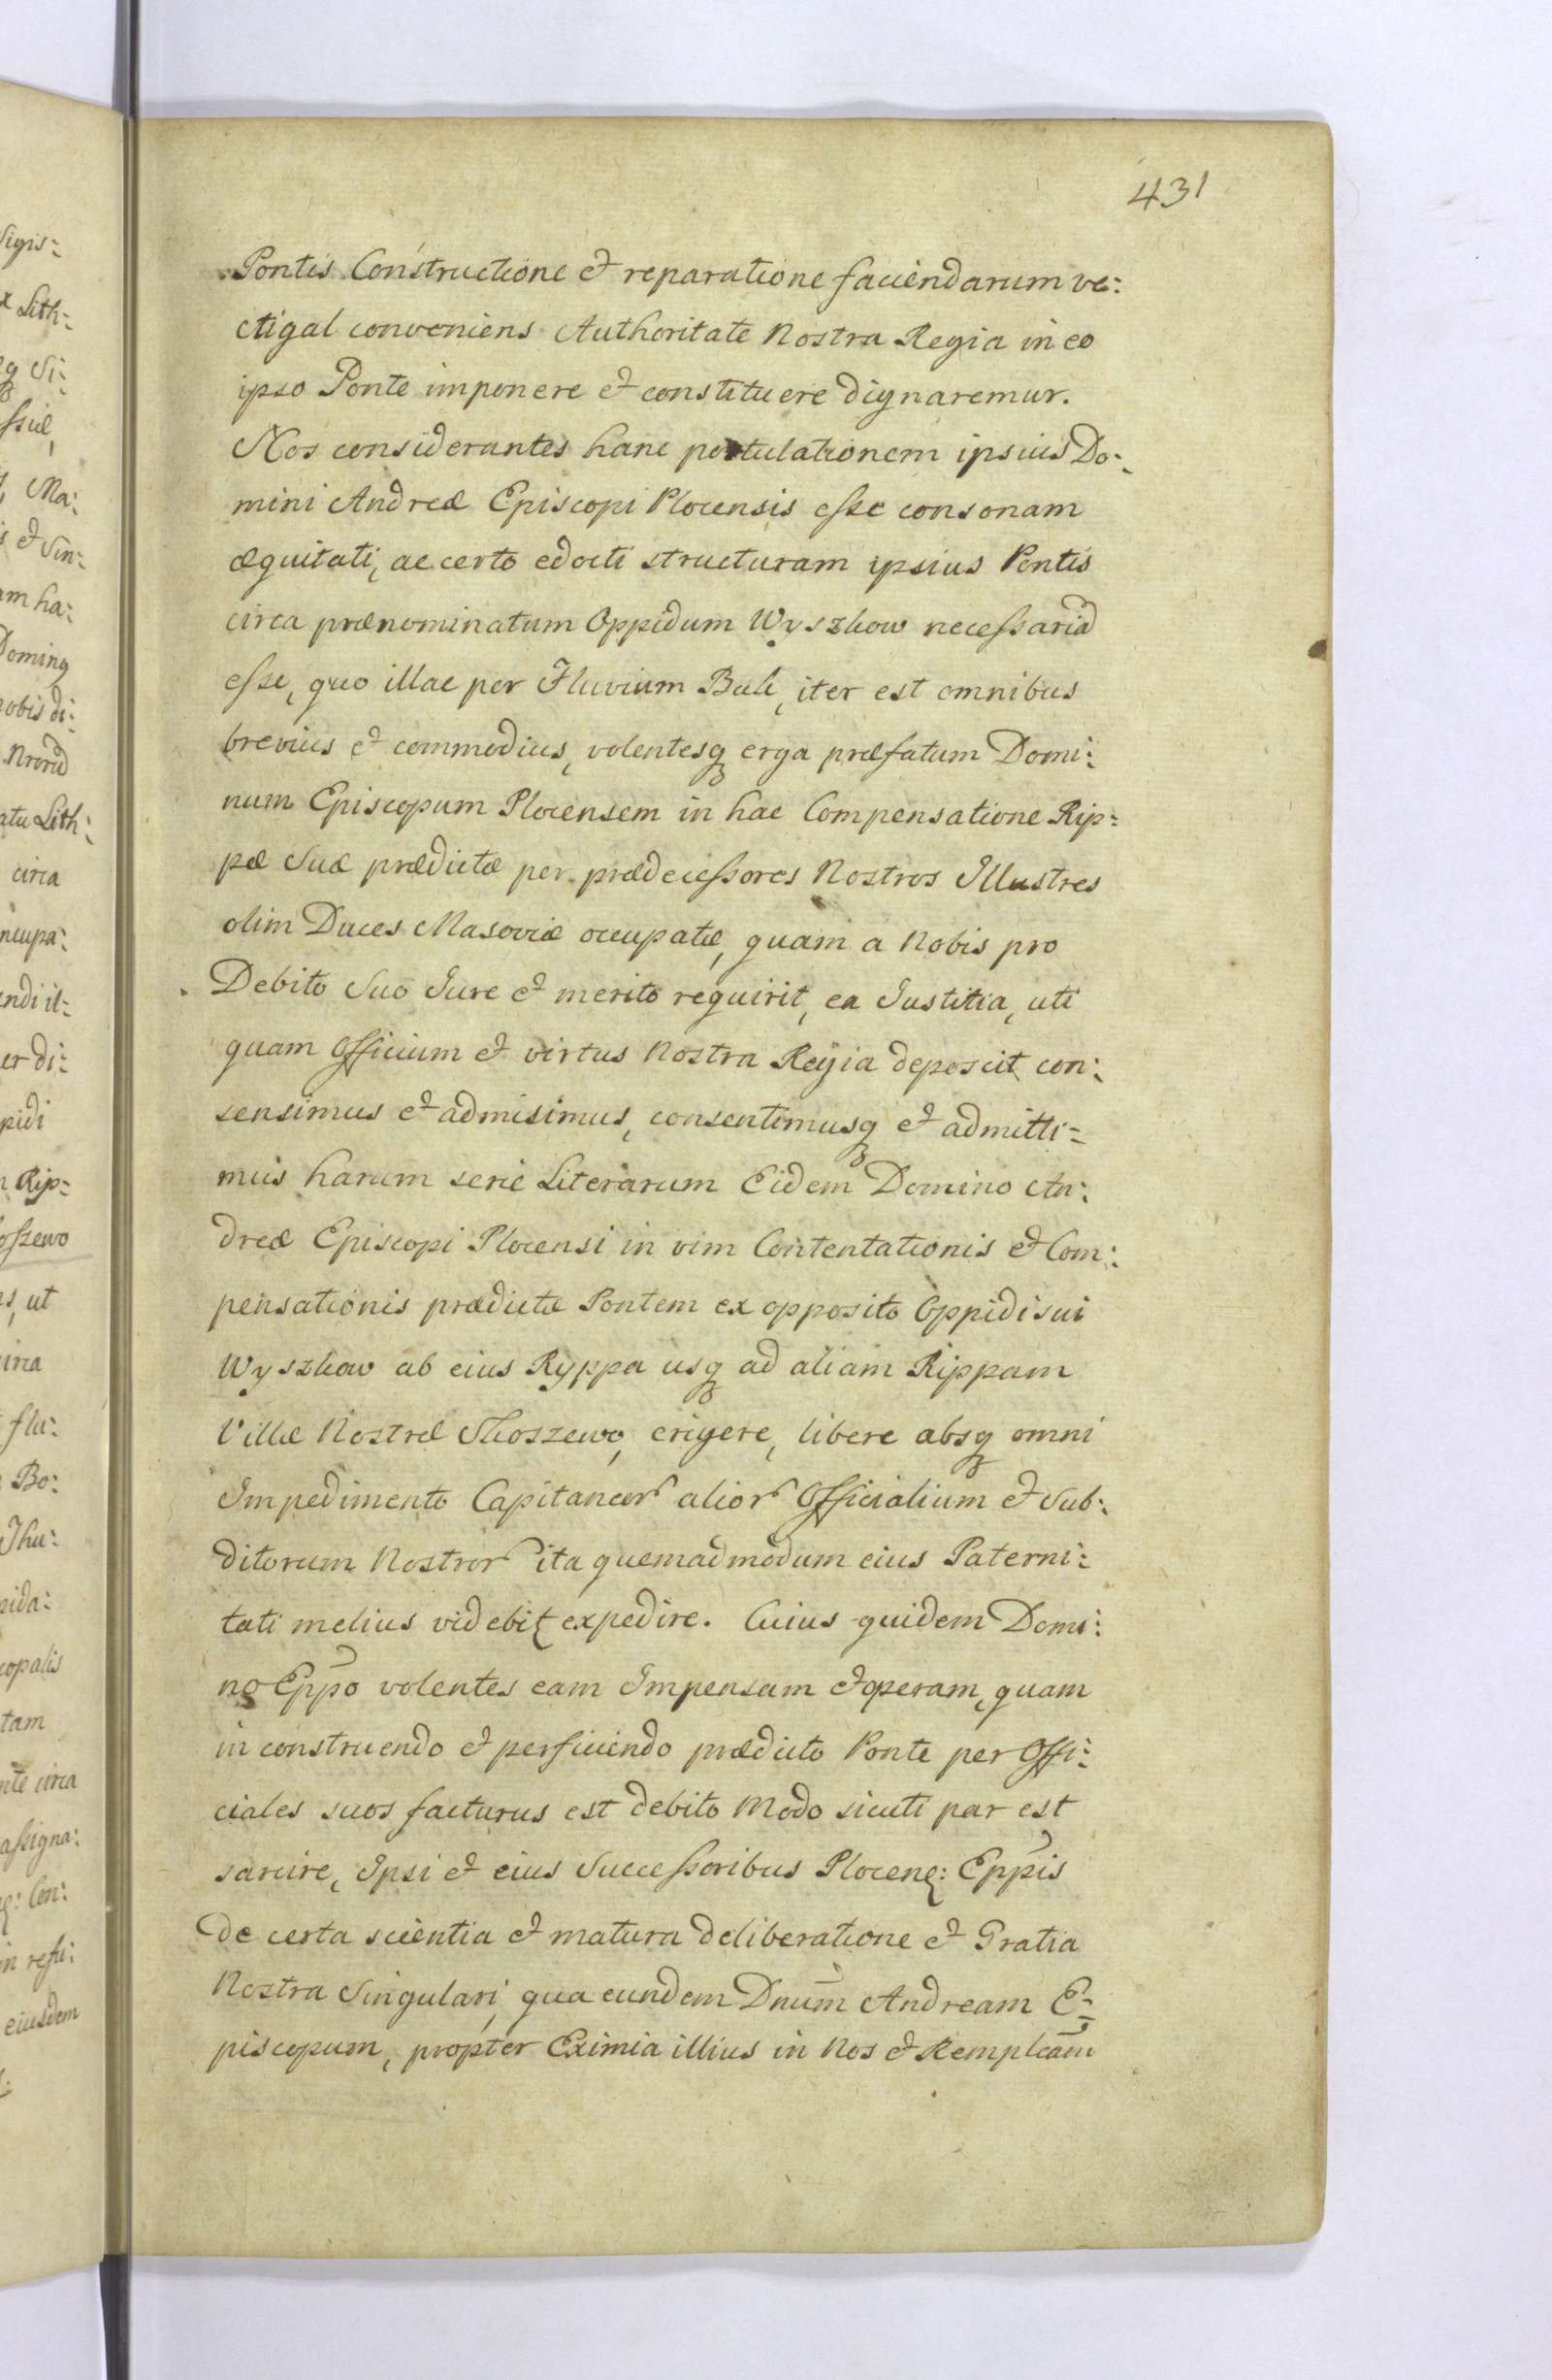 431
Pontis Constructione et reparatione faciendarum ve:
ctigal conveniens Authoritate Nostra Regia in eo
ipso Ponte imponere et constituere dignaremur.
Nos considerantes hanc postulationem ipsius Do:
mini Andreæ Episcopi Plocensis esse consonam
æquitati, ac certo edocti structuram ipsius Pontis
circa prænominatum Oppidum Wyszkow necessariã
esse, quo illac per Fluvium Buk, iter est omnibus
brevius et commodius, volentesq erga præfatum Domi:
num Episcopum Plocensem in hac Compensatione Rip:
pæ Suæ prædictæ per prædecessores Nostros Illustres
olim Duces Masoviæ occupatæ, quam a Nobis pro
Debito Suo Jure et merito requirit, ea Justitia, uti
quam Officium et virtus Nostra Regia deposcit con:
sensimus et admisimus, consentimusq et admitti:
mus harum serie Literarum Eidem Domino An:
dreæ Episcopi Plocensi in vim Contentationis et Com:
pensationis prædictæ Pontem ex opposito Oppidi sui
Wyszkow ab eius Ryppa usq ad aliam Rippam
Villæ Nostræ Skoszewo, erigere, libere absq omni
Impedimento Capitaneor alior Officialium et Sub:
ditorum Nostror ita quemadmodum eius Paterni:
tati melius videbit expedire. Cuius quidem Domi:
no Eppo volentes eam Impensam et operam, quam
in construendo et perficiendo prædicto Ponte per Offi:
ciales suos facturus est debito Modo sicuti par est
sarcire, Ipsi et eius Successoribus Plocen: Eppis
de certa scientia et matura deliberatione et Gratia
Nostra Singulari, qua eundem Dnum Andream E:
piscopum, propter Eximia illius in Nos et Remplcam